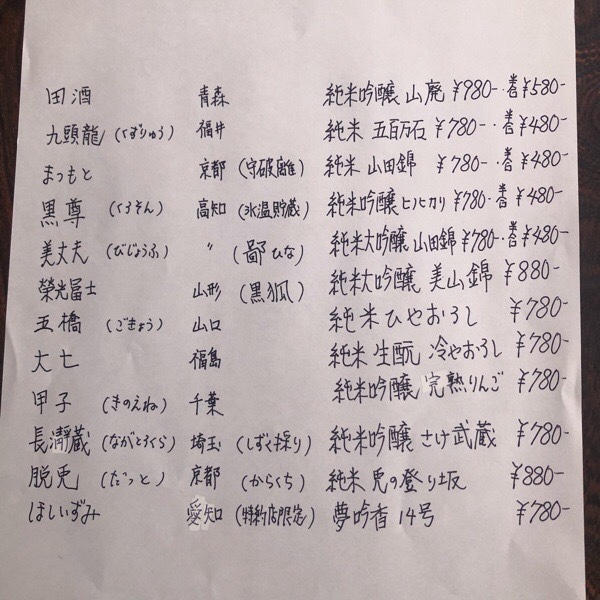 田酒 青森 純米吟醸 山廃 ¥980-・半合 ¥580-
九頭龍 (くずりゅう) 福井 純米 五百万石 ¥780-・半合 ¥480-
まつもと 京都 (守破離) 純米 山田錦 ¥780-・半合 ¥480-
黒尊 (くろそん) 高知 (氷温貯蔵) 純米吟醸 ヒノヒカリ ¥780-半合 ¥480-
美丈夫 (びじょうふ) 〃 (鄙ひな) 純米大吟醸 山田錦 ¥780-半合 ¥480-
榮光冨士 山形 (黒狐) 純米大吟醸 美山錦 ¥880-
五橋 (ごきょう) 山口 純米 ひやおろし ¥780-
大七 福島 純米 生酛 冷やおろし ¥780-
甲子 (きのえね) 千葉 純米吟醸 完熟りんご ¥780-
長瀞蔵 (ながとろくら) 埼玉 (しずく採り) 純米吟醸 さけ武蔵 ¥780-
脱兎 (だっと) 京都 (からくち) 純米 兎の登り坂 ¥880-
ほしいずみ 愛知 (特約店限定) 夢吟香 14号 ¥780-